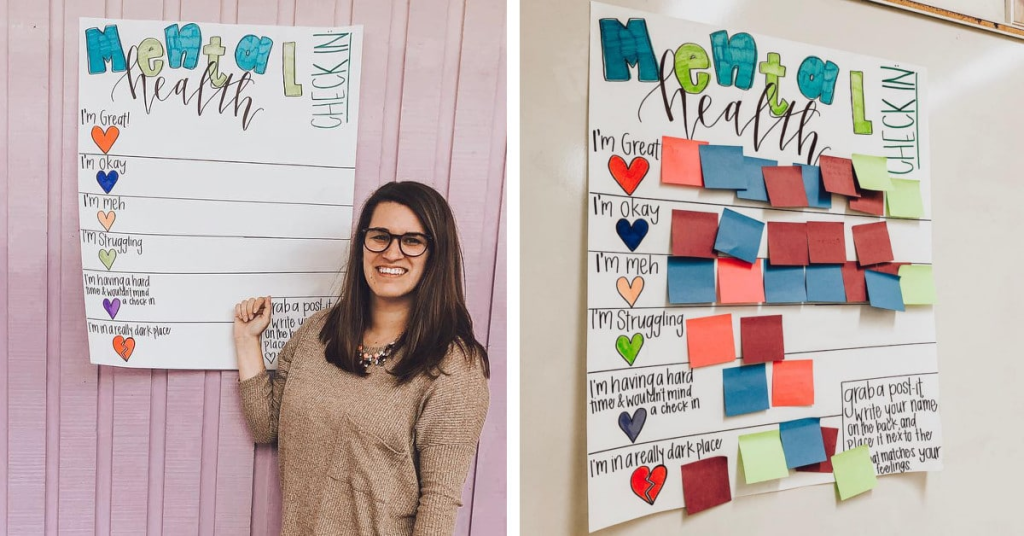 Mental
Health
CHECK IN:
I'm Great!
I'm Okay
I'm meh
I'm Struggling
I'm having a hard
time & wouldn't mind
a check in
I'm in a really dark place
grab a post-it
write
on the back
place
Mental
Health
CHECK IN:
I'm Great
I'm Okay
I'm meh
I'm Struggling
I'm having a hard
time & wouldn't mind
a check in
I'm in a really dark place
grab a post-it
write your name
on the back, and
place it next to the
matches your
feelings.